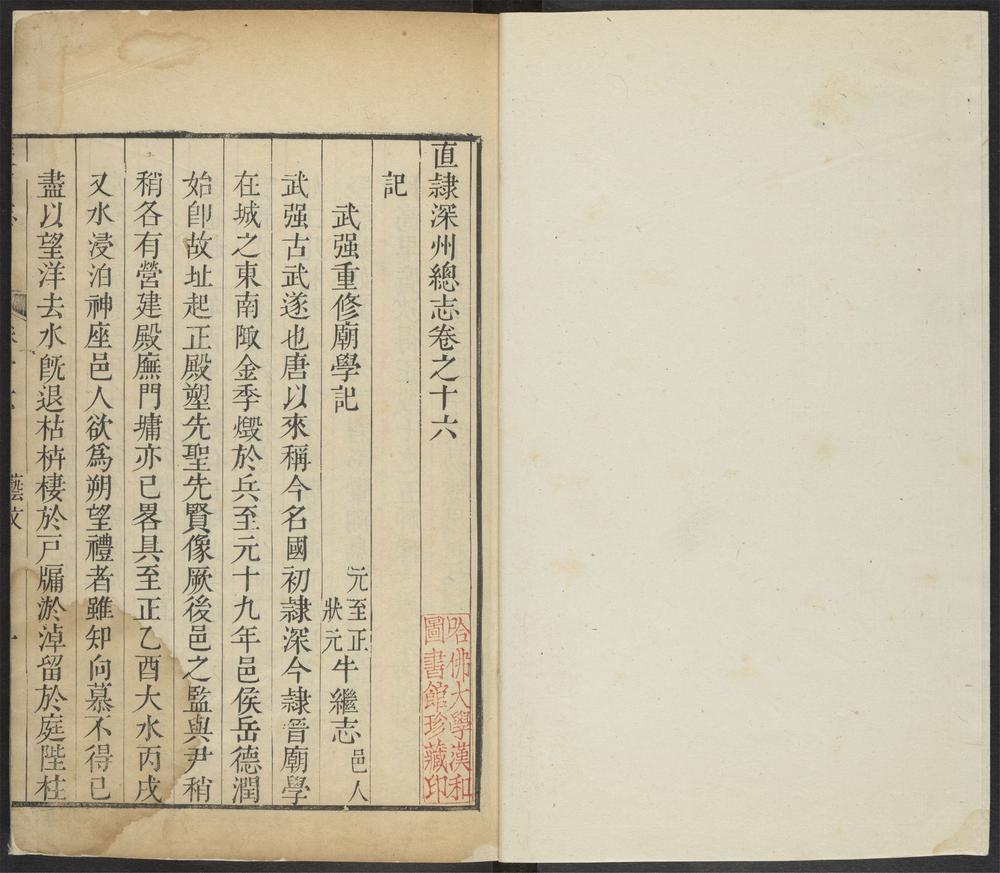 直隸深州總志卷之十六
記
武强重修廟學記
元至正
狀元
牛繼志
邑人
武强古武遂也唐以來稱今名國初隸深今隸晉廟學
在城之東南陬金季燬於兵至元十九年邑侯岳德潤
始卽故址起正殿塑先聖先賢像厥後邑之監與尹稍
稍各有營建殿廡門墉亦已畧具至正乙酉大水丙戌
又水浸泊神座邑人欲爲朔望禮者雖知向慕不得已
盡以望洋去水旣退枯枿棲於戸牖淤淖留於庭陛柱
藝文
一
哈佛大學漢和
圖書館珍藏印